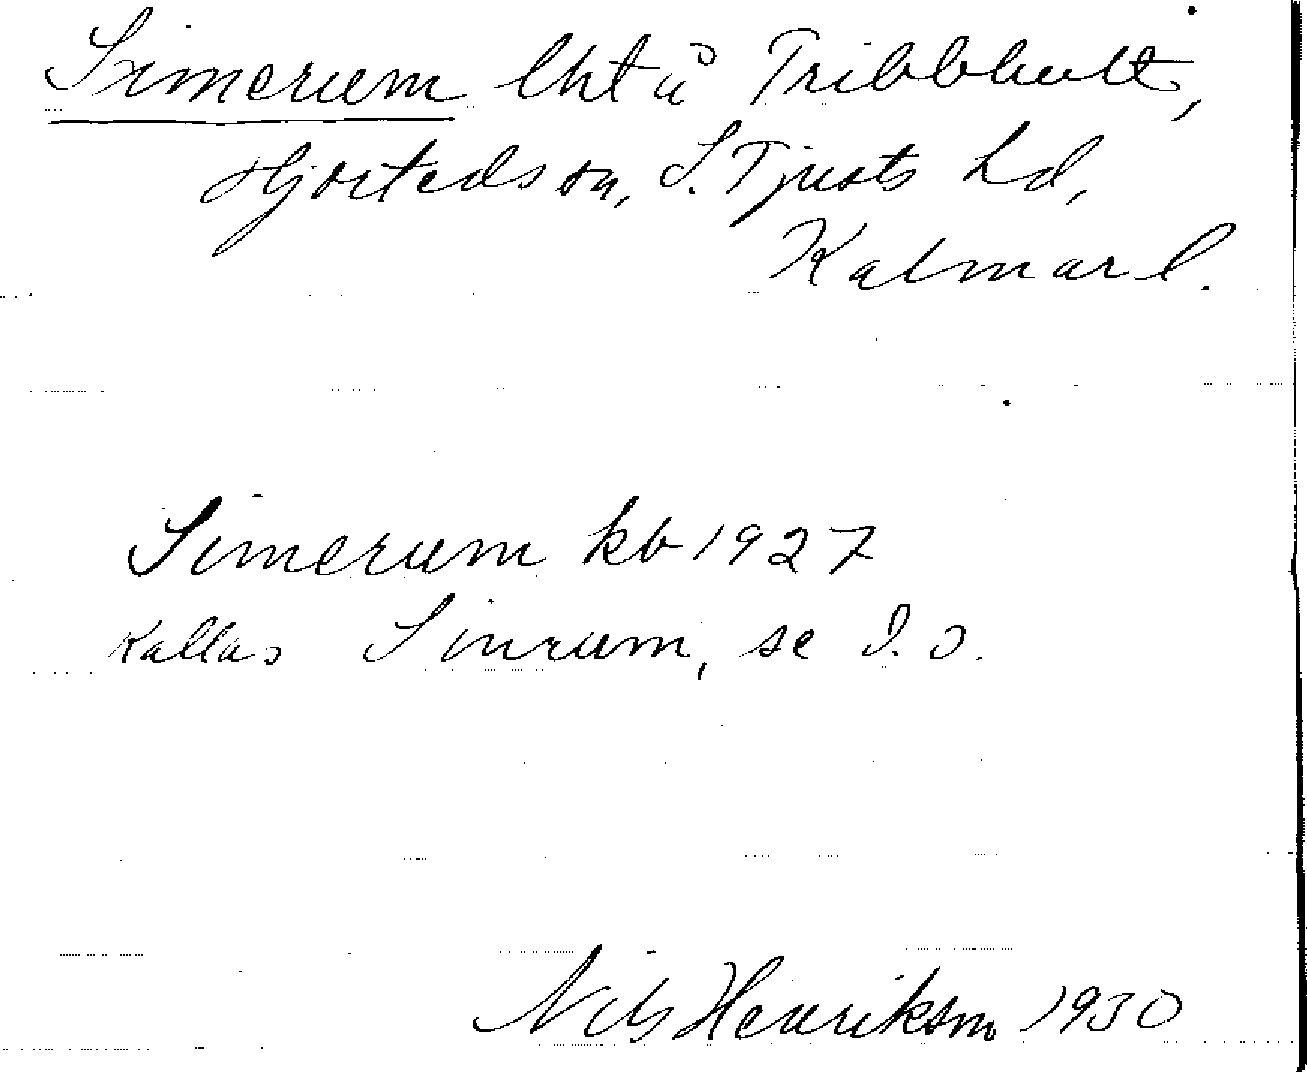 Simerum lht å Tribbhult,
Hjorteds sn, S. Tjusts hd,
Kalmar l.
Simerum kb 1927
Kallas Sinrum, se d. o.
Nils Henrikson 1930